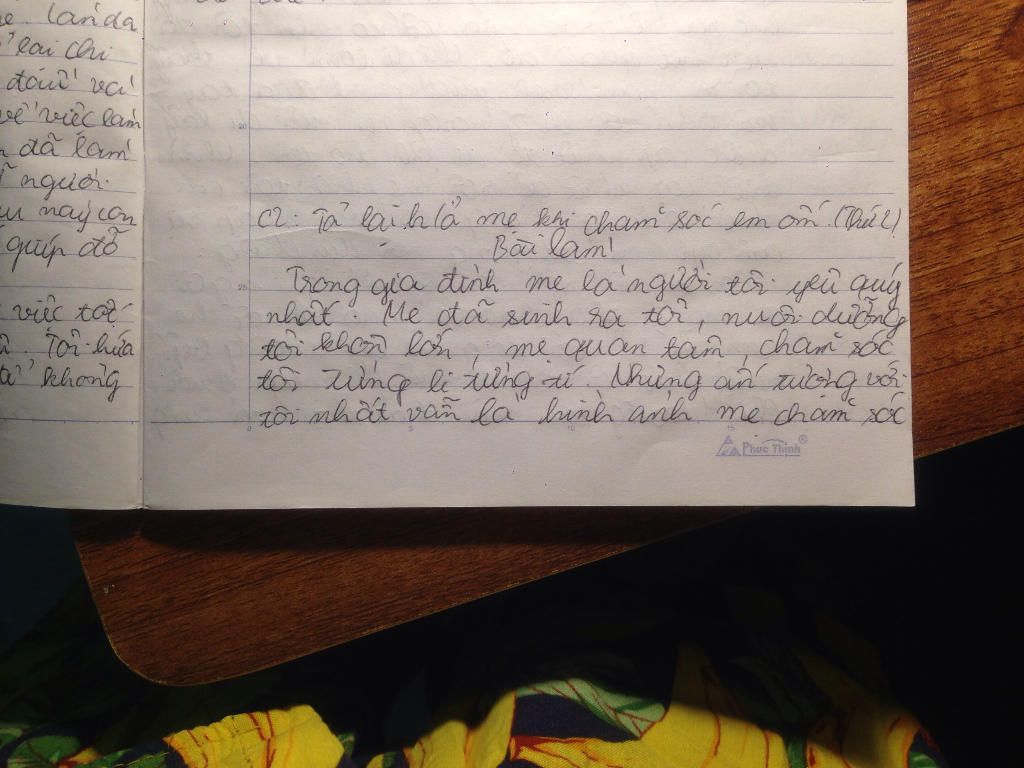 lan da
lại chi
đầu và
về việc làm
đã làm
người.
này con
giúp đỡ
việc tốt
Tôi hứa
không
C2. Tả lại h/ả mẹ khi chăm sóc em ốm. (Thứ 2)
Bài làm
Trong gia đình mẹ là người tôi yêu quý
nhất. Mẹ đã sinh ra tôi, nuôi dưỡng
tôi khôn lớn, mẹ quan tâm, chăm sóc
tôi từng li từng tí. Nhưng ấn tượng với
tôi nhất vẫn là hình ảnh mẹ chăm sóc
20
25
0
5
10
15
Phúc Thịnh®